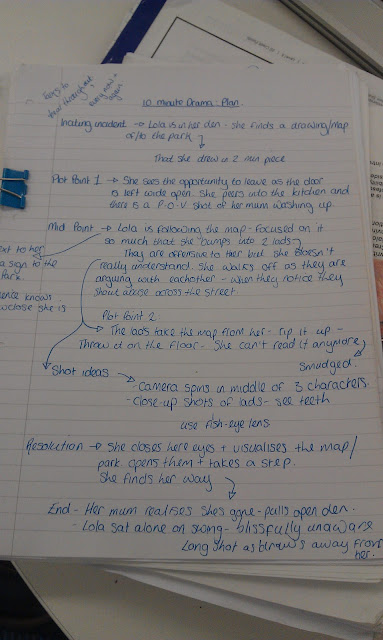 throughout
every now +
again
10 minute Drama Plan.
Inciting incident → Lola is in her den - she finds a drawing/map
of/to the park.
That she drew in 2 min piece
Plot Point 1 → She sees the opportunity to leave as the door
is left wide open. She peers into the kitchen and
there is a P.O.V shot of her mum washing up.
Mid Point → Lola is following the map - Focused on it
so much that she "bumps into 2 lads"
They are offensive to her but she doesn't
really understand. She walks off as they are
arguing with eachother - when they notice they
shout abuse across the street.
ext to her
a sign to the
Park.
ence known
w close she is
Plot Point 2
The lads take the map from her - rip it up -
Throw it on the floor - She can't read it anymore
Smudged.
Shot ideas
- Camera spins in middle of 3 characters.
- Close-up shots of lads - see teeth
use fish-eye lens
Resolution → She closes here eyes + visualises the map/
park. opens them + takes a step.
She finds her way
End - Her mum realises she's gone - pulls open den.
- Lola sat alone on swing - blissfully unaware
Long shot as draws away from
her.